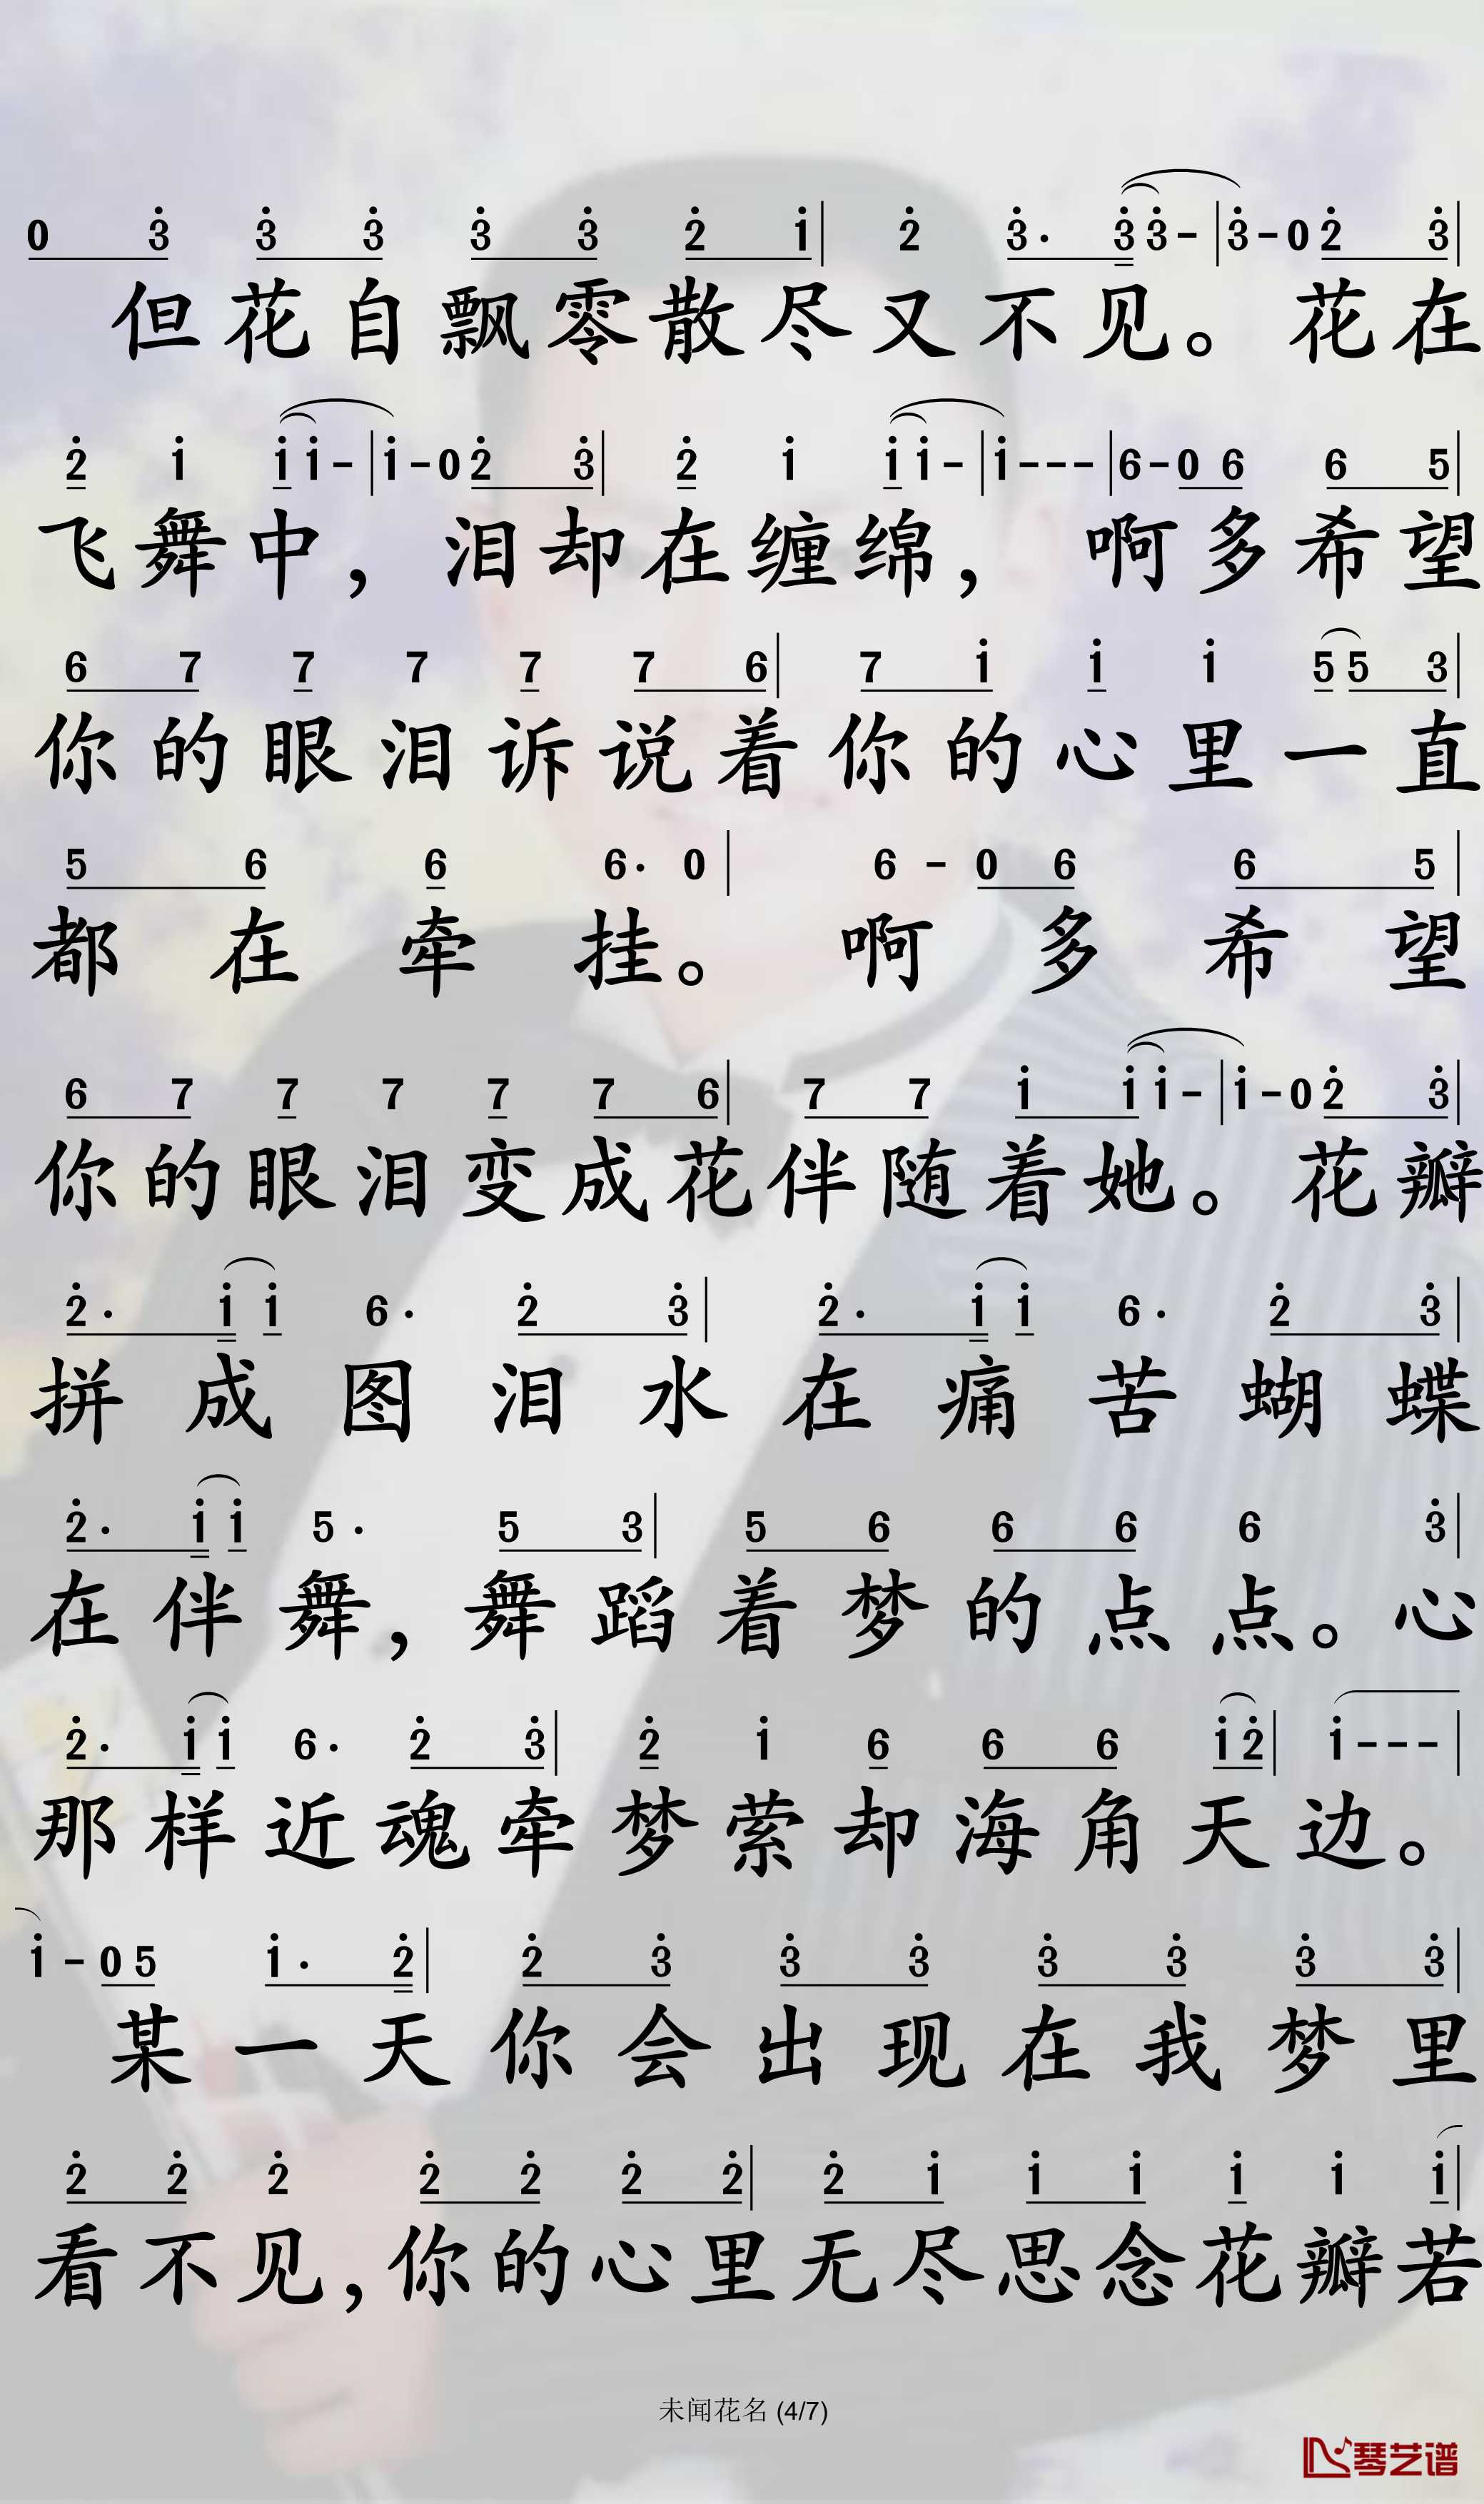 0 3 3 3 3 3 2 1 | 2 3. 3 3 - | 3 - 0 2 3 |
但花自飘零散尽又不见。花在
2 1 1 1 - | 1 - 0 2 3 | 2 1 1 1 - | 1 - - - | 6 - 0 6 6 5 |
飞舞中，泪却在缠绵，啊多希望
6 7 7 7 7 7 6 | 7 1 1 1 5 5 3 |
你的眼泪诉说着你的心里一直
5 6 6 6. 0 | 6 - 0 6 6 5 |
都在牵挂。啊多希望
6 7 7 7 7 7 6 | 7 7 1 1 1 - | 1 - 0 2 3 |
你的眼泪变成花伴随着她。花瓣
2. 1 1 6. 2 3 | 2. 1 1 6. 2 3 |
拼成图泪水在痛苦蝴蝶
2. 1 1 5. 5 3 | 5 6 6 6 6 3 |
在伴舞，舞蹈着梦的点点。心
2. 1 1 6. 2 3 | 2 1 6 6 6 1 2 | 1 - - - |
那样近魂牵梦萦却海角天边。
1 - 0 5 1. 2 | 2 3 3 3 3 3 3 3 |
某一天你会出现在我梦里
2 2 2 2 2 2 2 | 2 1 1 1 1 1 1 |
看不见，你的心里无尽思念花瓣若
未闻花名 (4/7)
琴艺谱